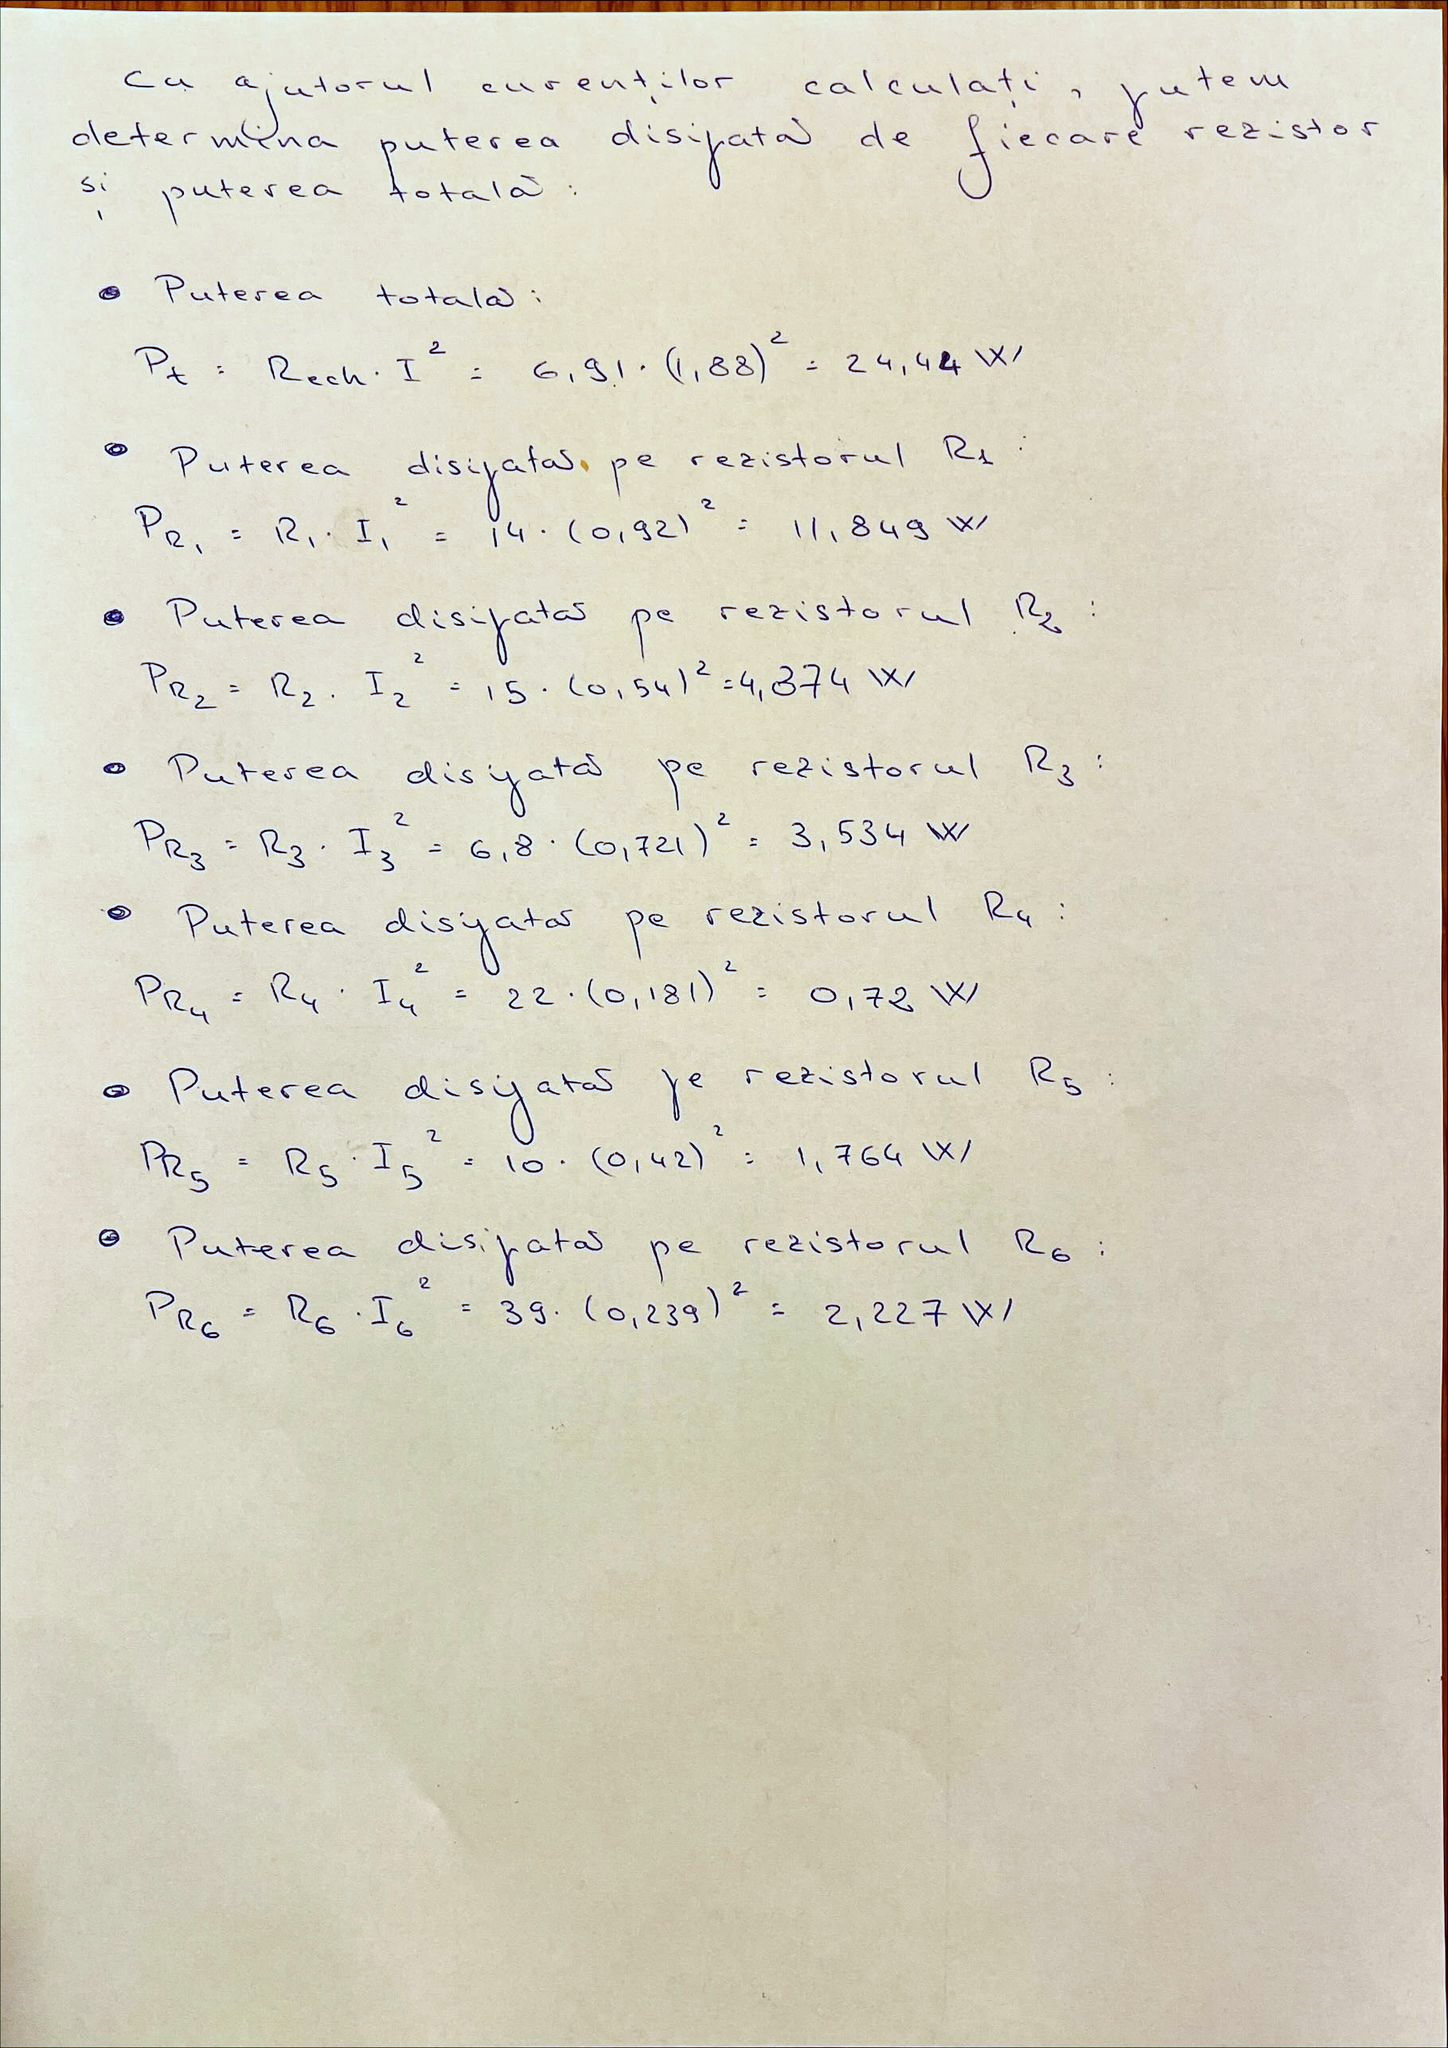 Cu ajutorul curenților calculați, putem
determina puterea disipată de fiecare rezistor
și puterea totală:
• Puterea totală:
Pt = Rech · I² = 6,91 · (1,88)² = 24,42 W
• Puterea disipată pe rezistorul R1:
PR1 = R1 · I1² = 14 · (0,92)² = 11,849 W
• Puterea disipată pe rezistorul R2:
PR2 = R2 · I2² = 15 · (0,54)² = 4,374 W
• Puterea disipată pe rezistorul R3:
PR3 = R3 · I3² = 6,8 · (0,721)² = 3,534 W
• Puterea disipată pe rezistorul R4:
PR4 = R4 · I4² = 22 · (0,181)² = 0,72 W
• Puterea disipată pe rezistorul R5:
PR5 = R5 · I5² = 10 · (0,42)² = 1,764 W
• Puterea disipată pe rezistorul R6:
PR6 = R6 · I6² = 39 · (0,239)² = 2,227 W